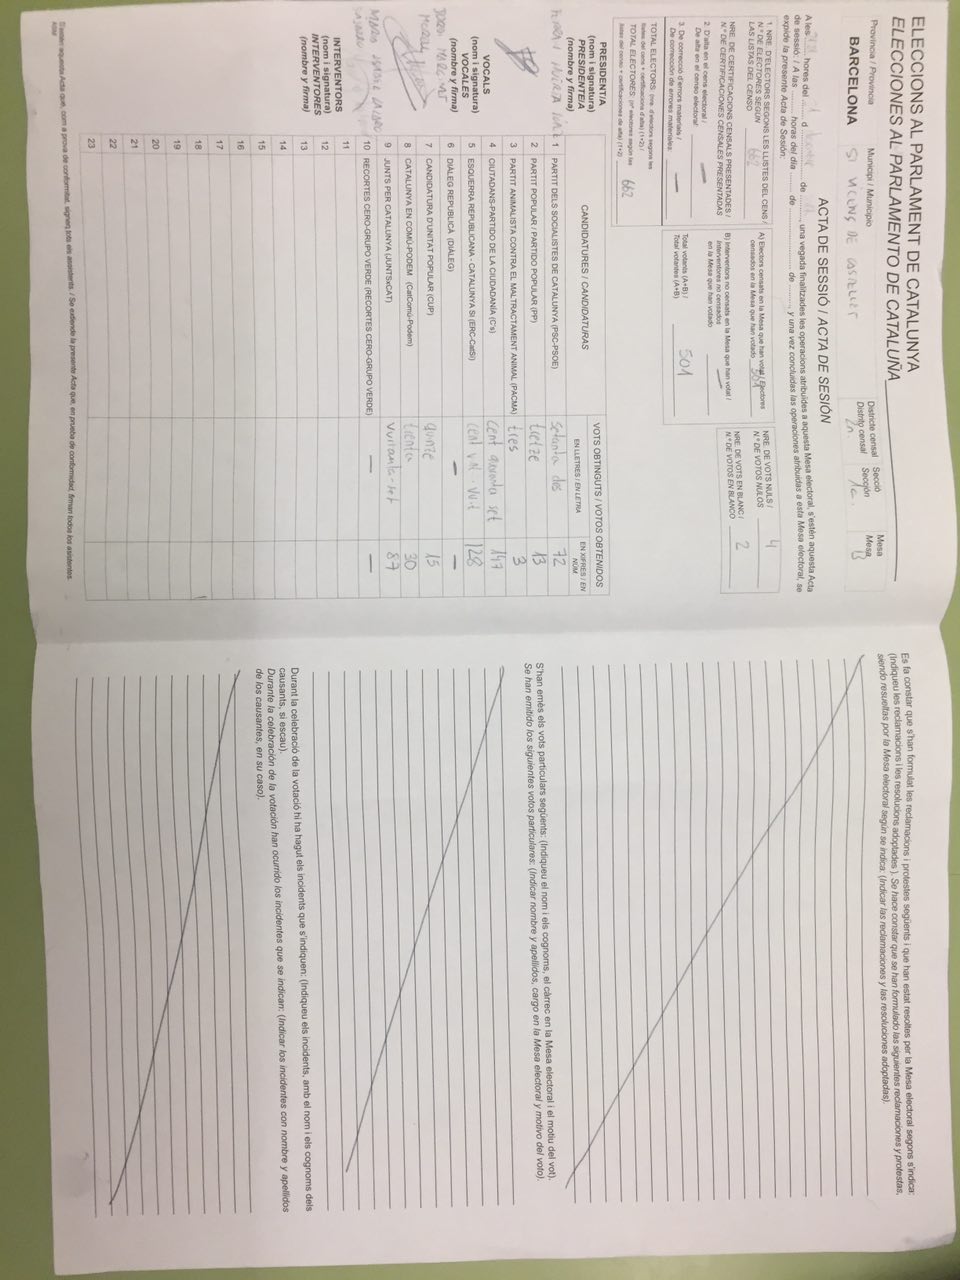 ELECCIONS AL PARLAMENT DE CATALUNYA
ELECCIONES AL PARLAMENTO DE CATALUÑA
Província / Provincia
BARCELONA
Municipi / Municipio
St VICENÇ DE CASTELLET
Districte censal
Distrito censal
2n
Secció
Sección
1a
Mesa
Mesa
B
ACTA DE SESSIÓ / ACTA DE SESIÓN
A les hores del d de una vegada finalitzades les operacions atribuïdes a aquesta Mesa electoral, s'estén aquesta Acta
de sessió: / A las horas del día de de y una vez concluidas las operaciones atribuidas a esta Mesa electoral, se
expide la presente Acta de Sesión.
1. NRE. D'ELECTORS SEGONS LES LLISTES DEL CENS /
N.º DE ELECTORES SEGÚN
LAS LISTAS DEL CENSO 662
NRE. DE CERTIFICACIONS CENSALS PRESENTADES /
N.º DE CERTIFICACIONES CENSALES PRESENTADAS
2. D'alta en el cens electoral /
De alta en el censo electoral —
3. De correcció d'errors materials /
De corrección de errores materiales —
TOTAL ELECTORS: (nre. d'electors segons les
llistes del cens + certificacions d'alta) (1+2) /
TOTAL ELECTORES: (nº electores según las
listas del censo + certificaciones de alta) (1+2) 662
A) Electors censats en la Mesa que han votat / Electores
censados en la Mesa que han votado 501
B) Interventors no censats en la Mesa que han votat /
Interventores no censados
en la Mesa que han votado —
Total votants (A+B) /
Total votantes (A+B) 501
NRE. DE VOTS NULS /
N.º DE VOTOS NULOS 4
NRE. DE VOTS EN BLANC /
N.º DE VOTOS EN BLANCO 2
CANDIDATURES / CANDIDATURAS
VOTS OBTINGUTS / VOTOS OBTENIDOS
EN LLETRES / EN LETRA
EN XIFRES / EN NÚM.
1 PARTIT DELS SOCIALISTES DE CATALUNYA (PSC-PSOE) setanta dos 72
2 PARTIT POPULAR / PARTIDO POPULAR (PP) tretze 13
3 PARTIT ANIMALISTA CONTRA EL MALTRACTAMENT ANIMAL (PACMA) tres 3
4 CIUTADANS-PARTIDO DE LA CIUDADANÍA (C's) cent quaranta set 147
5 ESQUERRA REPUBLICANA - CATALUNYA SÍ (ERC-CatSí) cent vint-vuit 128
6 DIÀLEG REPUBLICÀ (DIÀLEG) — —
7 CANDIDATURA D'UNITAT POPULAR (CUP) quinze 15
8 CATALUNYA EN COMÚ-PODEM (CatComú-Podem) trenta 30
9 JUNTS PER CATALUNYA (JUNTSxCAT) vuitanta-set 87
10 RECORTES CERO-GRUPO VERDE (RECORTES CERO-GRUPO VERDE) — —
11
12
13
14
15
16
17
18
19
20
21
22
23
PRESIDENT/A
(nom i signatura)
PRESIDENTE/A
(nombre y firma)
VOCALS
(nom i signatura)
VOCALES
(nombre y firma)
INTERVENTORS
(nom i signatura)
INTERVENTORES
(nombre y firma)
S'estén aquesta Acta que, com a prova de conformitat, signen tots els assistents. / Se extiende la presente Acta que, en prueba de conformidad, firman todos los asistentes.
Es fa constar que s'han formulat les reclamacions i protestes següents i que han estat resoltes per la Mesa electoral segons s'indica:
(Indiqueu les reclamacions i les resolucions adoptades ). Se hace constar que se han formulado las siguientes reclamaciones y protestas,
siendo resueltas por la Mesa electoral según se indica: (Indicar las reclamaciones y las resoluciones adoptadas).
S'han emès els vots particulars següents: (Indiqueu el nom i els cognoms, el càrrec en la Mesa electoral i el motiu del vot).
Se han emitido los siguientes votos particulares: (Indicar nombre y apellidos, cargo en la Mesa electoral y motivo del voto).
Durant la celebració de la votació hi ha hagut els incidents que s'indiquen: (Indiqueu els incidents, amb el nom i els cognoms dels
causants, si escau).
Durante la celebración de la votación han ocurrido los incidentes que se indican: (Indicar los incidentes con nombre y apellidos
de los causantes, en su caso).